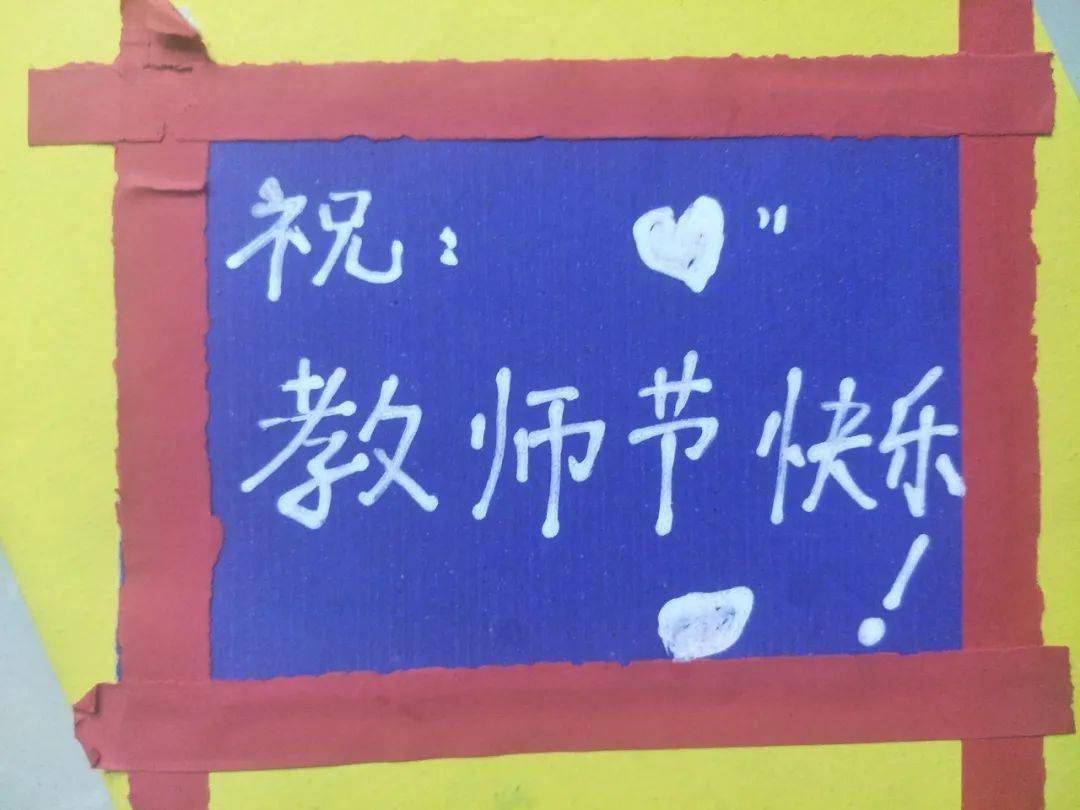 祝：
教师节快乐
！